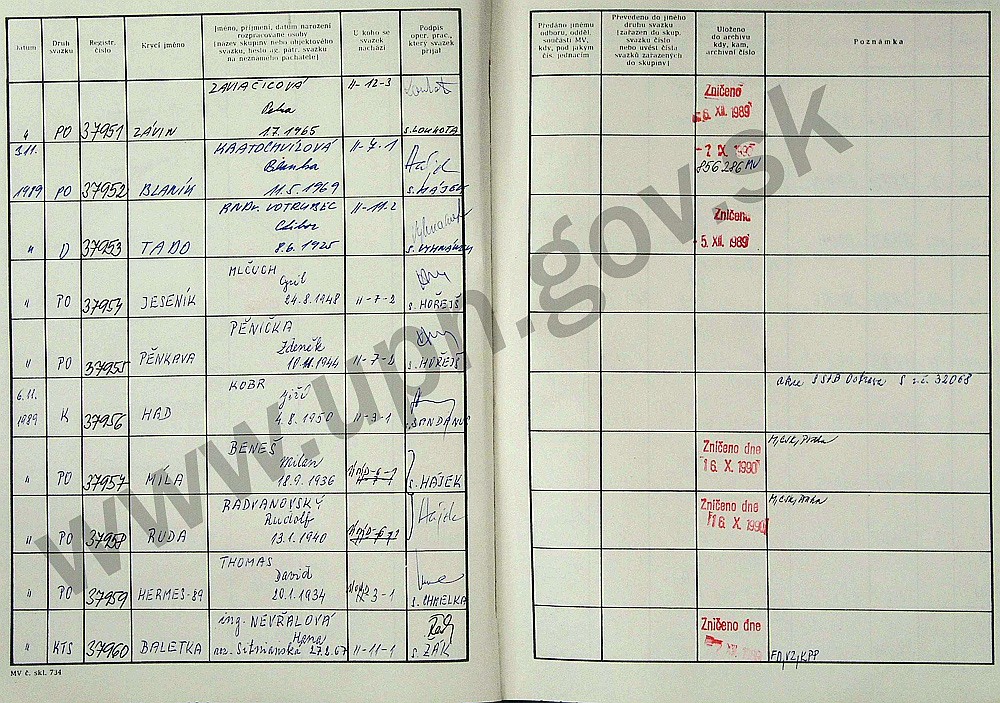 Datum
Druh svazku
Registr. číslo
Krycí jméno
Jméno, příjmení, datum narození
rozpracované osoby
(název skupiny nebo objektového
svazku, heslo ag. pátr. svazku
na neznámého pachatele)
U koho se
svazek
nachází
Podpis
oper. prac.,
který svazek
přijal
Předáno jinému
odboru, odděl.
součásti MV,
kdy, pod jakým
čís. jednacím
Převedeno do jiného
druhu svazku
(zařazen do skup.
svazku číslo
nebo uvést čísla
svazků zařazených
do skupiny)
Uloženo
do archivu
kdy, kam,
archivní číslo
Poznámka
ZAVIAČICOVÁ II-12-3
Petra
" PO 37951 ZÁVIN 1.7. 1965 s. LOUKOTA
Zničeno
6. XII. 1989
3.11. KRATOCHVÍLOVÁ II-7-1
Blanka
1989 PO 37952 BLANÍK 11.5. 1969 s. HÁJEK
856 286 MV
RNDr. VOTRUBEC II-11-2
Ctibor
" D 37953 TADO 8.6. 1925
Zničeno
- 5. XII. 1989
MLČUCH
Cyril
" PO 37954 JESENÍK 24.8.1948 II-7-2 s. HOŘEJŠ
PĚNIČKA
Zdeněk
" PO 37955 PĚNKAVA 1944 II-7-2 s. HOŘEJŠ
6.11. KOBR
Jiří
1989 K 37956 HAD 4.8. 1950 II-3-1
S StB Ostrava 32068
BENEŠ
Milan
" PO 37957 MÍLA 18.9. 1936 s. HÁJEK
Zničeno dne
16. X. 1990
RADVANOVSKÝ
Rudolf
" PO 37958 RUDA 13.1. 1940
Zničeno dne
16. X. 1990
THOMAS
David
" PO 37959 HERMES-89 20.1. 1934 3-1 s. CHMELKA
ing. NEVŘALOVÁ
Hana
" KTS 37960 BALETKA roz. 27.2.67 II-11-1 s. ŽÁK
Zničeno dne
MV č. skl. 734
www.upn.gov.sk